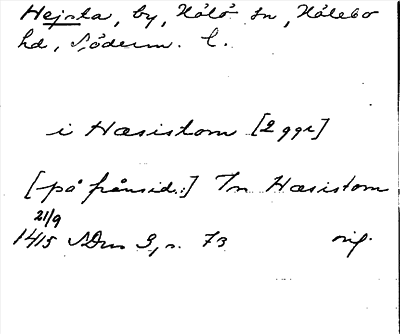 Hejsta, by, Hölö sn, Hölebo
hd, Söderm. l.
i Hæsistom [2 ggr]
[på frånsid.:] Jn Hæsistom
21/9
1415 SDns 3, s. 73 orig.